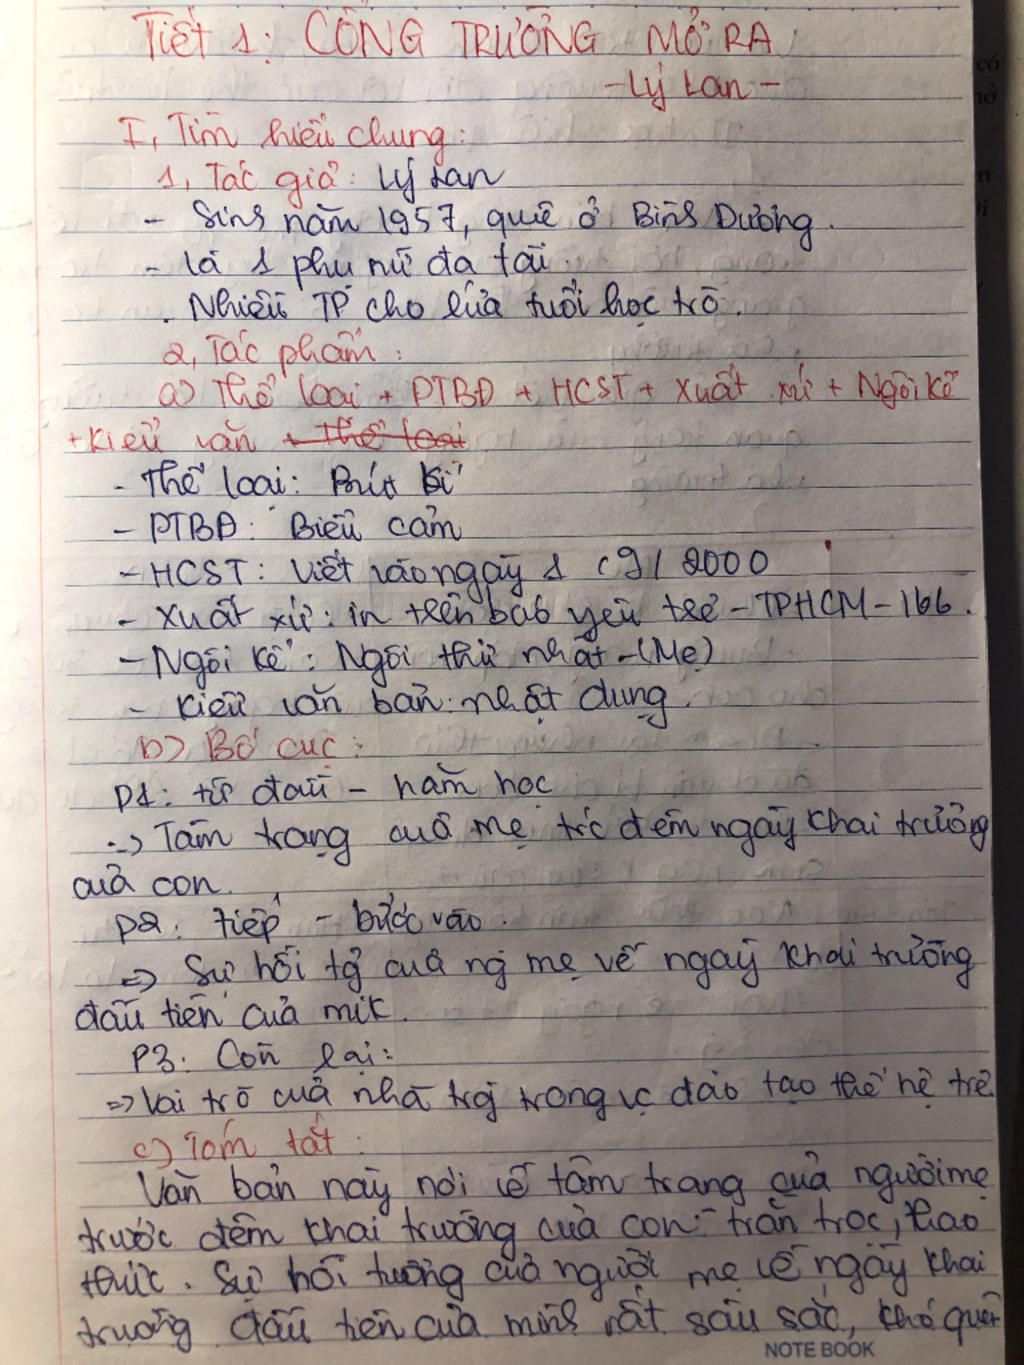 Tiết 1: CỔNG TRƯỜNG MỞ RA
- Lý Lan -
I, Tìm hiểu chung:
1, Tác giả: Lý Lan
- Sins năm 1957, quê ở Bìns Dương.
- Là 1 phụ nữ đa tài.
. Nhiều TP cho lứa tuổi học trò.
2, Tác phẩm:
a) Thể loại + PTBĐ + HCST + Xuất xứ + Ngôi kể
+ Kiểu văn + Thể loại
- Thể loại: Bút kí
- PTBĐ: Biểu cảm
- HCST: Viết vào ngày 1 / 9 / 2000
- Xuất xứ: in trên báo yêu trẻ - TPHCM - 166.
- Ngôi kể: Ngôi thứ nhất - (Mẹ)
- Kiểu văn bản: nhật dụng.
b) Bố cục:
P1: từ đầu - năm học
=> Tâm trạng của mẹ trc đêm ngày khai trường
của con.
P2: tiếp - bước vào.
=> Sự hồi tg̉ của ng mẹ về ngày khai trường
đầu tiên của mìk.
P3: Còn lại:
=> Vai trò của nhà trg̀ trong vc đào tạo thế hệ trẻ
c) Tóm tắt:
Văn bản này nói về tâm trạng của người mẹ
trước đêm khai trường của con - trằn trọc, thao
thức. Sự hồi tưởng của người mẹ về ngày khai
trường đầu tiên của mìns rất sâu sắc, khó quên
NOTE BOOK
có